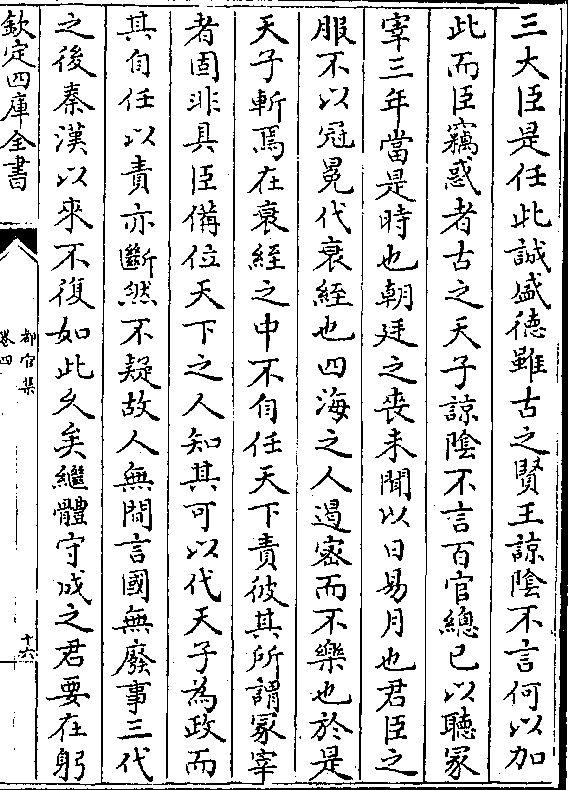 三大臣是任此誠盛德雖古之賢王諒陰不言何以加
此而臣竊惑者古之天子諒陰不言百官總已以聽冢
宰三年當是時也朝廷之喪未聞以日易月也君臣之
服不以冠冕代衰絰也四海之人遏密而不樂也於是
天子斬焉在衰絰之中不自任天下責彼其所謂冢宰
者固非具臣備位天下之人知其可以代天子為政而
其自任以責亦斷然不疑故人無間言國無廢事三代
之後秦漢以來不復如此久矣繼體守成之君要在躬
欽定四庫全書
都官集
卷四
十六